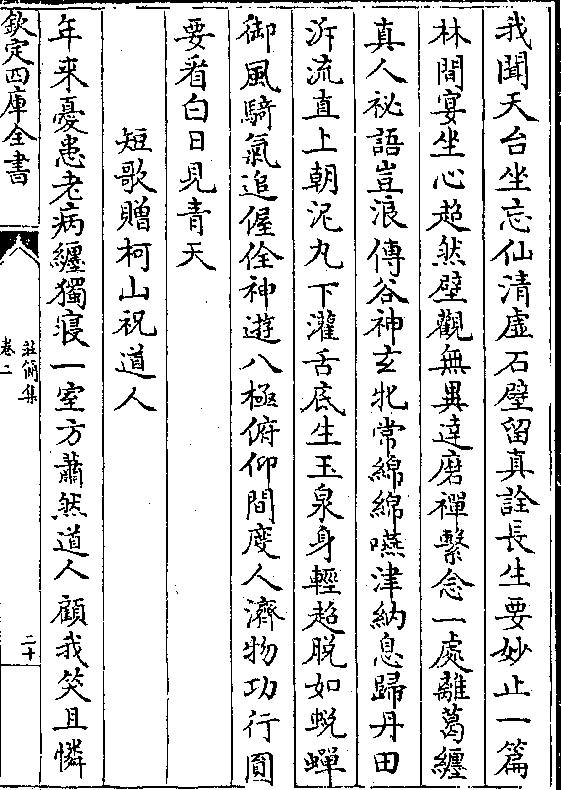 我聞天台坐忘仙清虚石壁留真詮長生要妙止一篇
林間宴坐心超然壁觀無異達磨禪繫念一處離葛纏
真人祕語豈浪傳谷神玄牝常綿綿嚥津納息歸丹田
泝流直上朝泥丸下灌舌底生玉泉身輕超脱如蜕蟬
御風騎氣追偓佺神遊八極俯仰間度人濟物功行圓
要看白日見青天
短歌贈柯山祝道人
年来憂患老病纏獨寢一室方蕭然道人顧我笑且憐
欽定四庫全書
莊簡集
卷二
二十